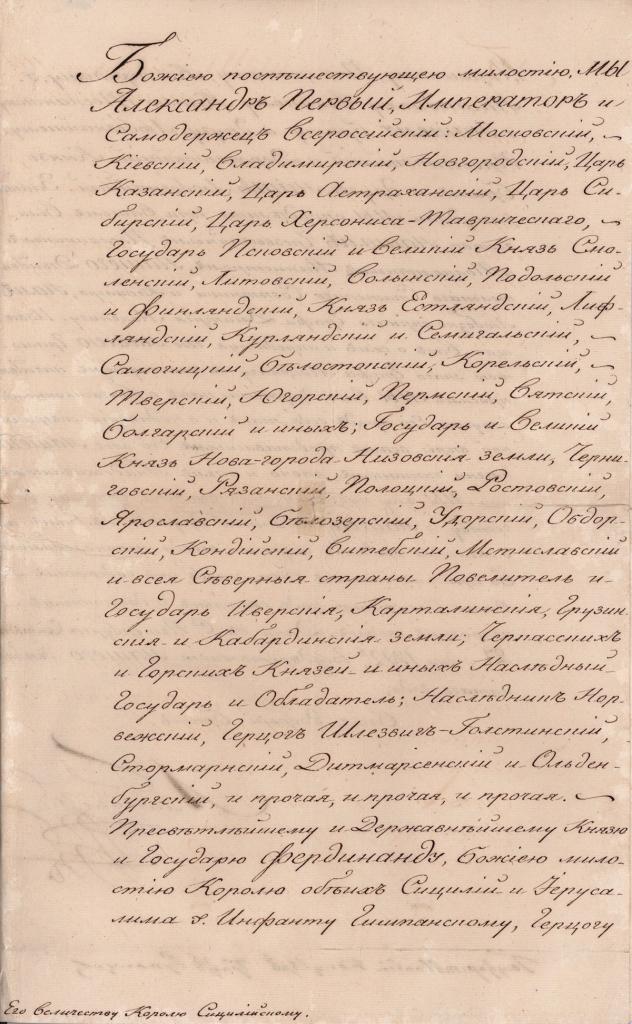 Божіею поспѣшествующею милостію, МЫ
Александръ Первый, Императоръ и
Самодержецъ Всероссійскій: Московскій,
Кіевскій, Владимирскій, Новгородскій, Царь
Казанскій, Царь Астраханскій, Царь Си-
бирскій, Царь Херсониса-Таврическаго,
Государь Псковскій и Великій Князь Смо-
ленскій, Литовскій, Волынскій, Подольскій
и Финляндскій, Князь Естляндскій, Лиф-
ляндскій, Курляндскій и Семигальскій,
Самогицкій, Бѣлостокскій, Корельскій,
Тверскій, Югорскій, Пермскій, Вятскій,
Болгарскій и иныхъ; Государь и Великій
Князь Нова-города Низовскія земли, Черни-
говскій, Рязанскій, Полоцкій, Ростовскій,
Ярославскій, Бѣлозерскій, Удорскій, Обдор-
скій, Кондійскій, Витебскій, Мстиславскій
и всея Сѣверныя страны Повелитель и
Государь Иверскія, Карталинскія, Грузин-
скія и Кабардинскія земли; Черкасскихъ
и Горскихъ Князей и иныхъ Наслѣдный
Государь и Обладатель; Наслѣдникъ Нор-
вежскій, Герцогъ Шлезвигъ-Голстинскій,
Стормарнскій, Дитмарсенскій и Ольден-
бургскій, и прочая, и прочая, и прочая.
Пресвѣтлѣйшему и Державнѣйшему Князю
и Государю Фердинанду, Божіею мило-
стію Королю обѣихъ Сицилій и Іеруса-
лима &. Инфанту Гишпанскому, Герцогу
Его Величеству Королю Сицилійскому.